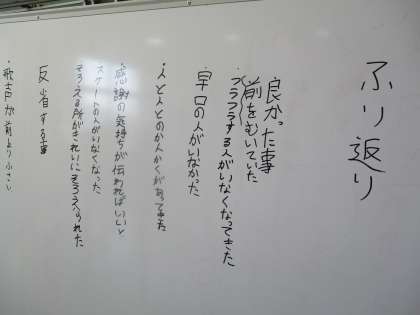 ふり返り
良かった事
・前をむいていた
・フラフラする人がいなくなってきた
・早口の人がいなかった
・人と人とのかんかくがあってきた
・感謝の気持ちが伝わればいいと
スケートの人がいなくなった
そろえる所がきれいにそろえられた
反省する事
・歌声が前より小さい